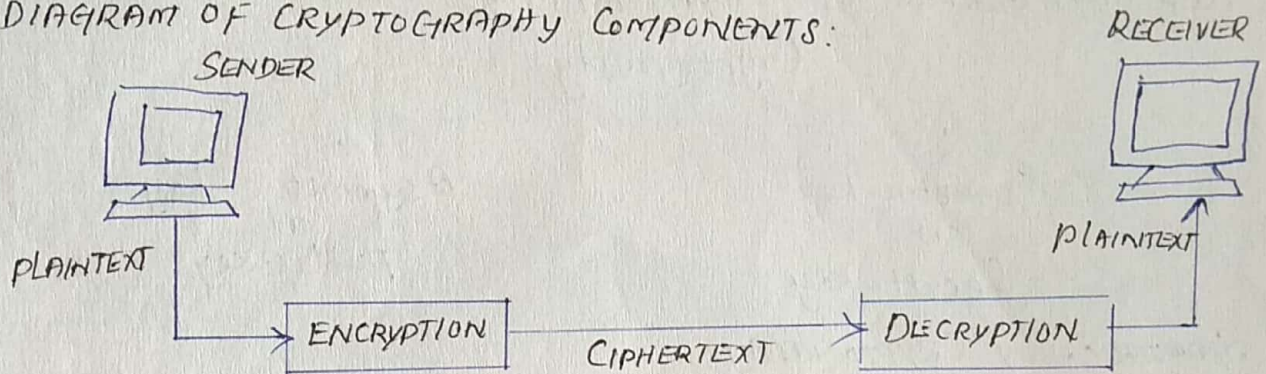 DIAGRAM OF CRYPTOGRAPHY COMPONENTS:
SENDER
RECEIVER
PLAINTEXT
PLAINTEXT
ENCRYPTION
CIPHERTEXT
DECRYPTION